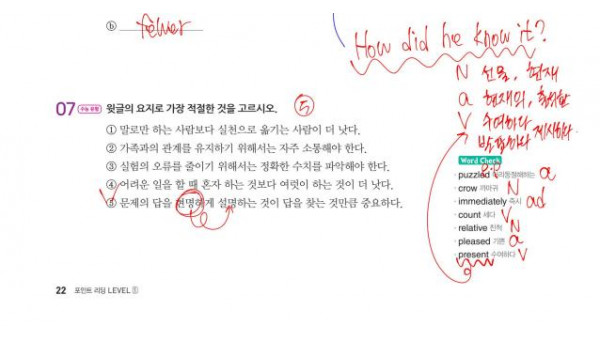 ⓑ fewer
How did he know it?
N 선물, 현재
a 현재의,
V 수여하다
제시하다
07 수능 유형 윗글의 요지로 가장 적절한 것을 고르시오. ⑤
① 말로만 하는 사람보다 실천으로 옮기는 사람이 더 낫다.
② 가족과의 관계를 유지하기 위해서는 자주 소통해야 한다.
③ 실험의 오류를 줄이기 위해서는 정확한 수치를 파악해야 한다.
④ 어려운 일을 할 때 혼자 하는 것보다 여럿이 하는 것이 더 낫다.
⑤ 문제의 답을 현명하게 설명하는 것이 답을 찾는 것만큼 중요하다.
Word Check
· puzzled 어리둥절해하는 a
· crow 까마귀 N
· immediately 즉시 ad
· count 세다 V
· relative 친척 N
· pleased 기쁜 a
· present 수여하다 V
22 포인트 리딩 LEVEL ⑤